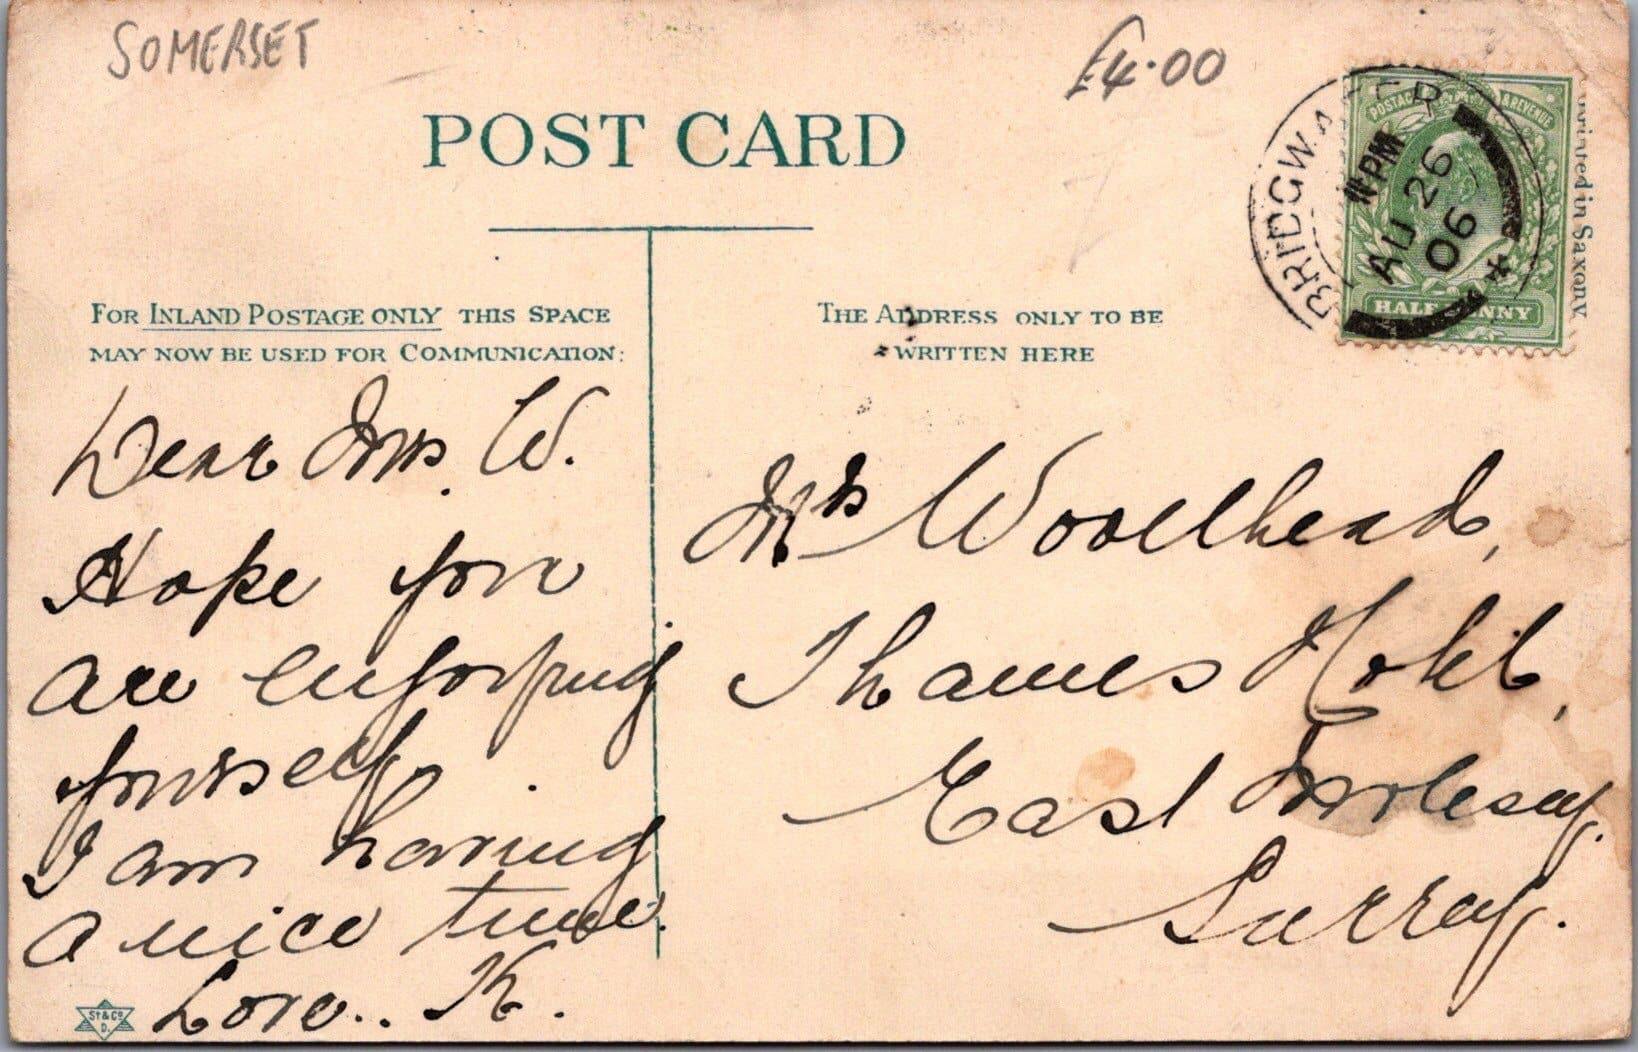 SOMERSET
£4.00
POST CARD
FOR INLAND POSTAGE ONLY THIS SPACE
MAY NOW BE USED FOR COMMUNICATION:
THE ADDRESS ONLY TO BE
WRITTEN HERE
POSTAGE & REVENUE
HALFPENNY
BRIDGWATER
PM
AU 26
06
Printed in Saxony
Dear Mrs. W.
Hope you
are enjoying
yourself.
I am having
a nice time.
Love.. K.
Mrs Woollhead,
Thames Hotel,
East Molesey.
Surrey.
St & Co
D.